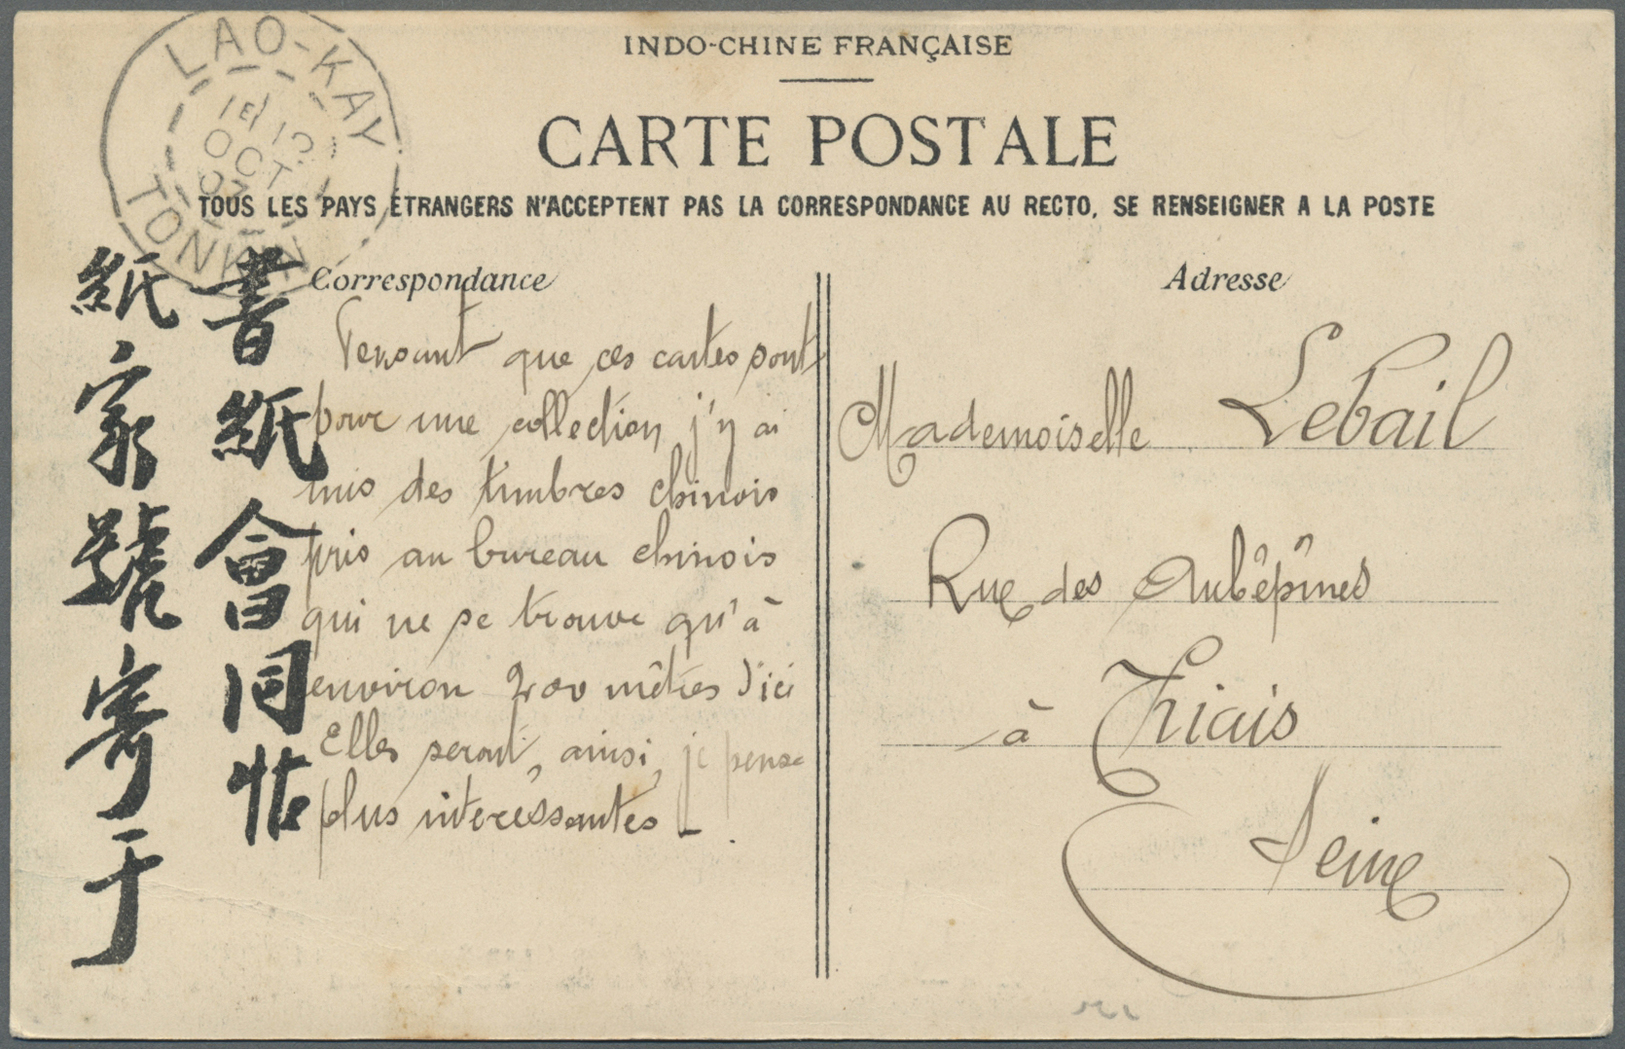 INDO-CHINE FRANÇAISE
CARTE POSTALE
TOUS LES PAYS ÉTRANGERS N'ACCEPTENT PAS LA CORRESPONDANCE AU RECTO, SE RENSEIGNER A LA POSTE
LAO-KAY
OCT.
TONKIN
Correspondance
Pensant que ces cartes sont
pour une collection j'y ai
mis des timbres chinois
pris au bureau chinois
qui ne se trouve qu'à
environ 200 mètres d'ici
Elles seront, ainsi, je pense
plus intéressantes.
書紙會同
紙家號寄于
Adresse
Mademoiselle Lebail
Rue des Aubêpines
à Thiais
Seine